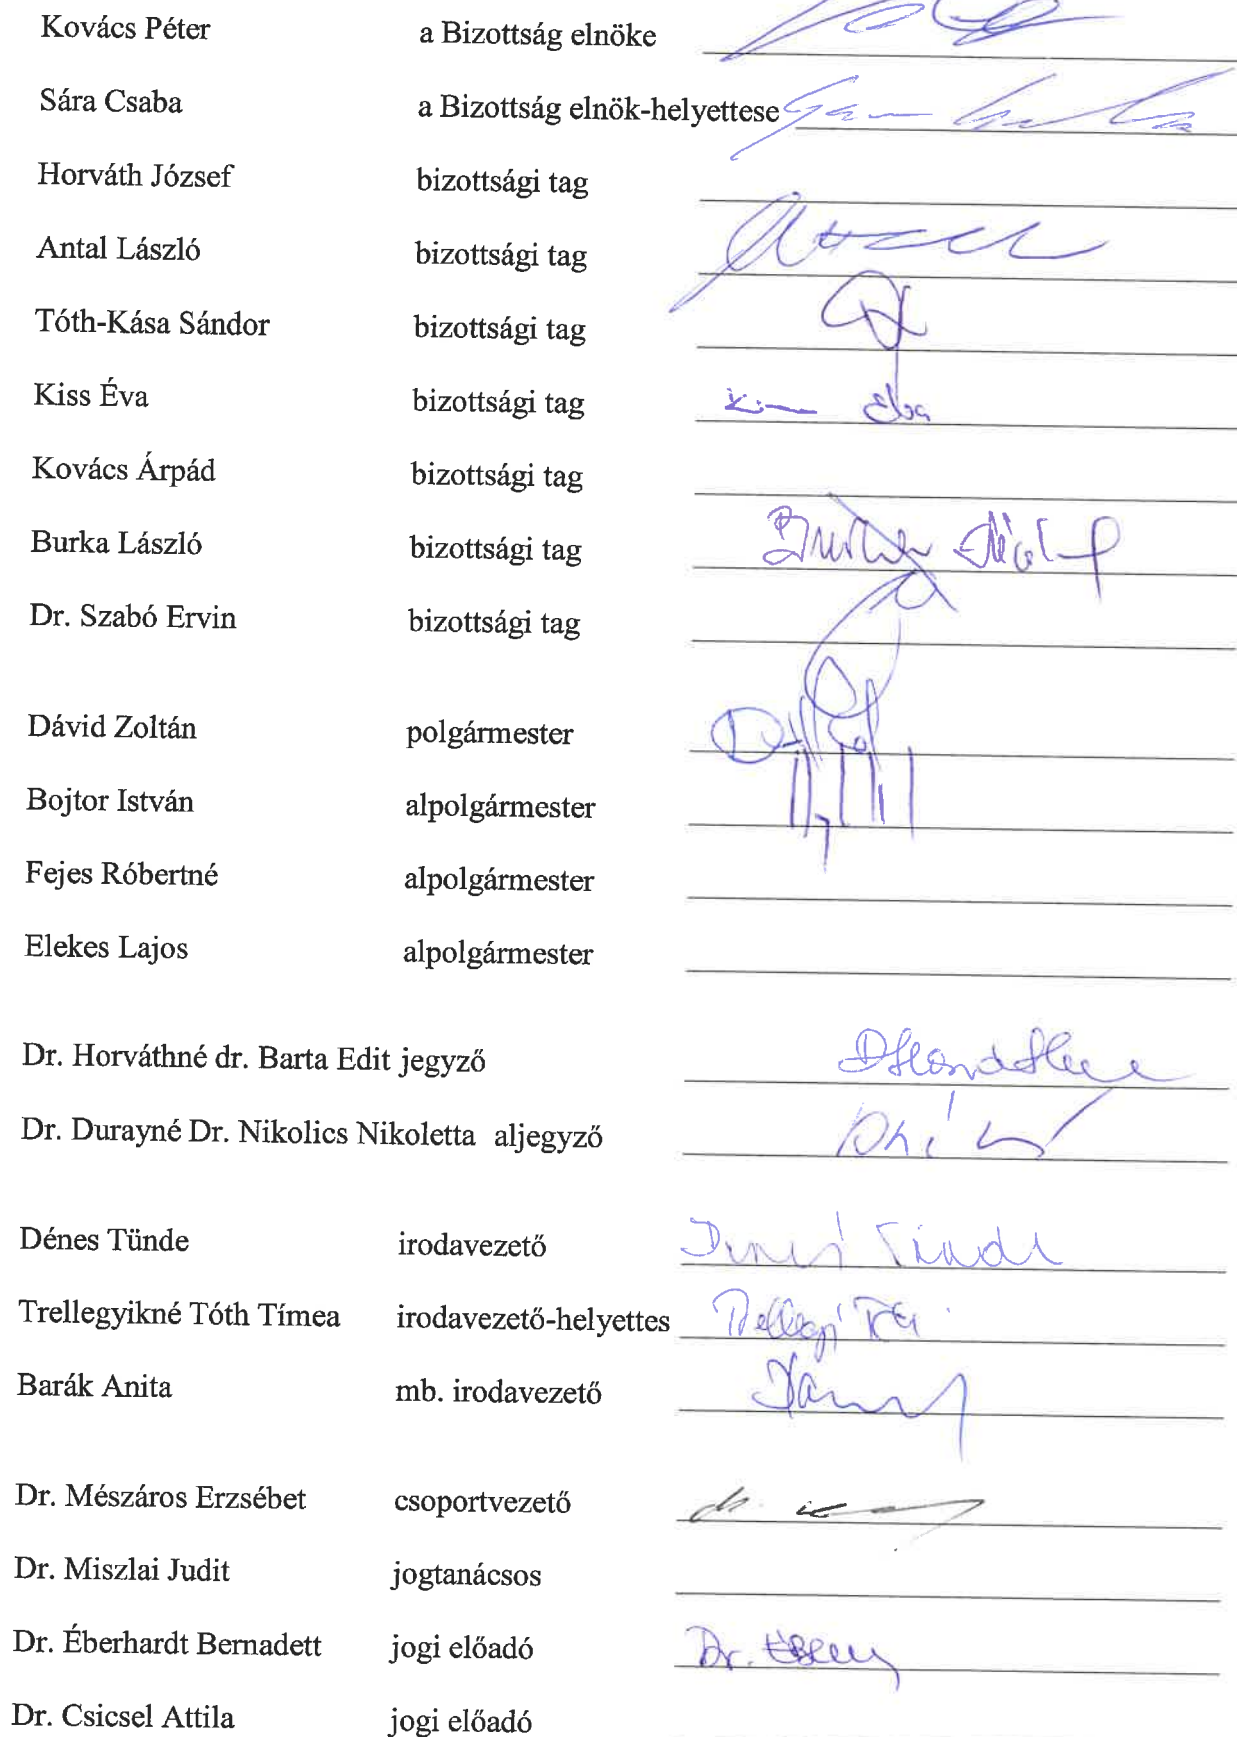 Kovács Péter a Bizottság elnöke
Sára Csaba a Bizottság elnök-helyettese
Horváth József bizottsági tag
Antal László bizottsági tag
Tóth-Kása Sándor bizottsági tag
Kiss Éva bizottsági tag Kiss Éva
Kovács Árpád bizottsági tag
Burka László bizottsági tag Burka László
Dr. Szabó Ervin bizottsági tag
Dávid Zoltán polgármester
Bojtor István alpolgármester
Fejes Róbertné alpolgármester
Elekes Lajos alpolgármester
Dr. Horváthné dr. Barta Edit jegyző
Dr. Durayné Dr. Nikolics Nikoletta aljegyző
Dénes Tünde irodavezető Dénes Tünde
Trellegyikné Tóth Tímea irodavezető-helyettes
Barák Anita mb. irodavezető
Dr. Mészáros Erzsébet csoportvezető
Dr. Miszlai Judit jogtanácsos
Dr. Éberhardt Bernadett jogi előadó Dr.
Dr. Csicsel Attila jogi előadó